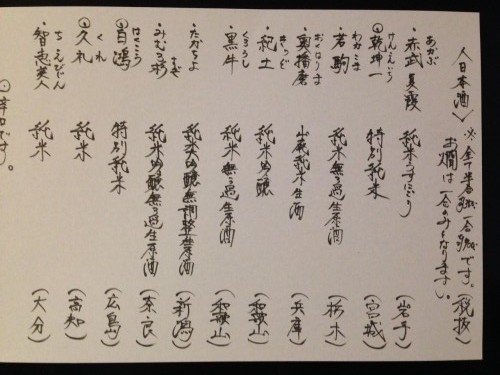 〈日本酒〉 ※全て です。(税抜)
お燗は一合のみとなります。
あかぶ
・赤武 夏霞 純米うすにごり (岩手)
けんこんいち
⊙乾坤一 特別純米 (宮城)
わかこま
・若駒 純米無濾過生原酒 (栃木)
おくはりま
・奥播磨 山廃純米生酒 (兵庫)
きっど
・紀土 純米吟醸 (和歌山)
くろうし
・黒牛 純米無濾過生原酒 (和歌山)
・たかちよ 純米大吟醸無調整生原酒 (新潟)
すぎ
・みむろ杉 純米吟醸無濾過生原酒 (奈良)
はくこう
⊙白鴻 特別純米 (広島)
くれ
⊙久礼 純米 (高知)
ちえびじん
・智恵美人 純米 (大分)
⊙辛口です。